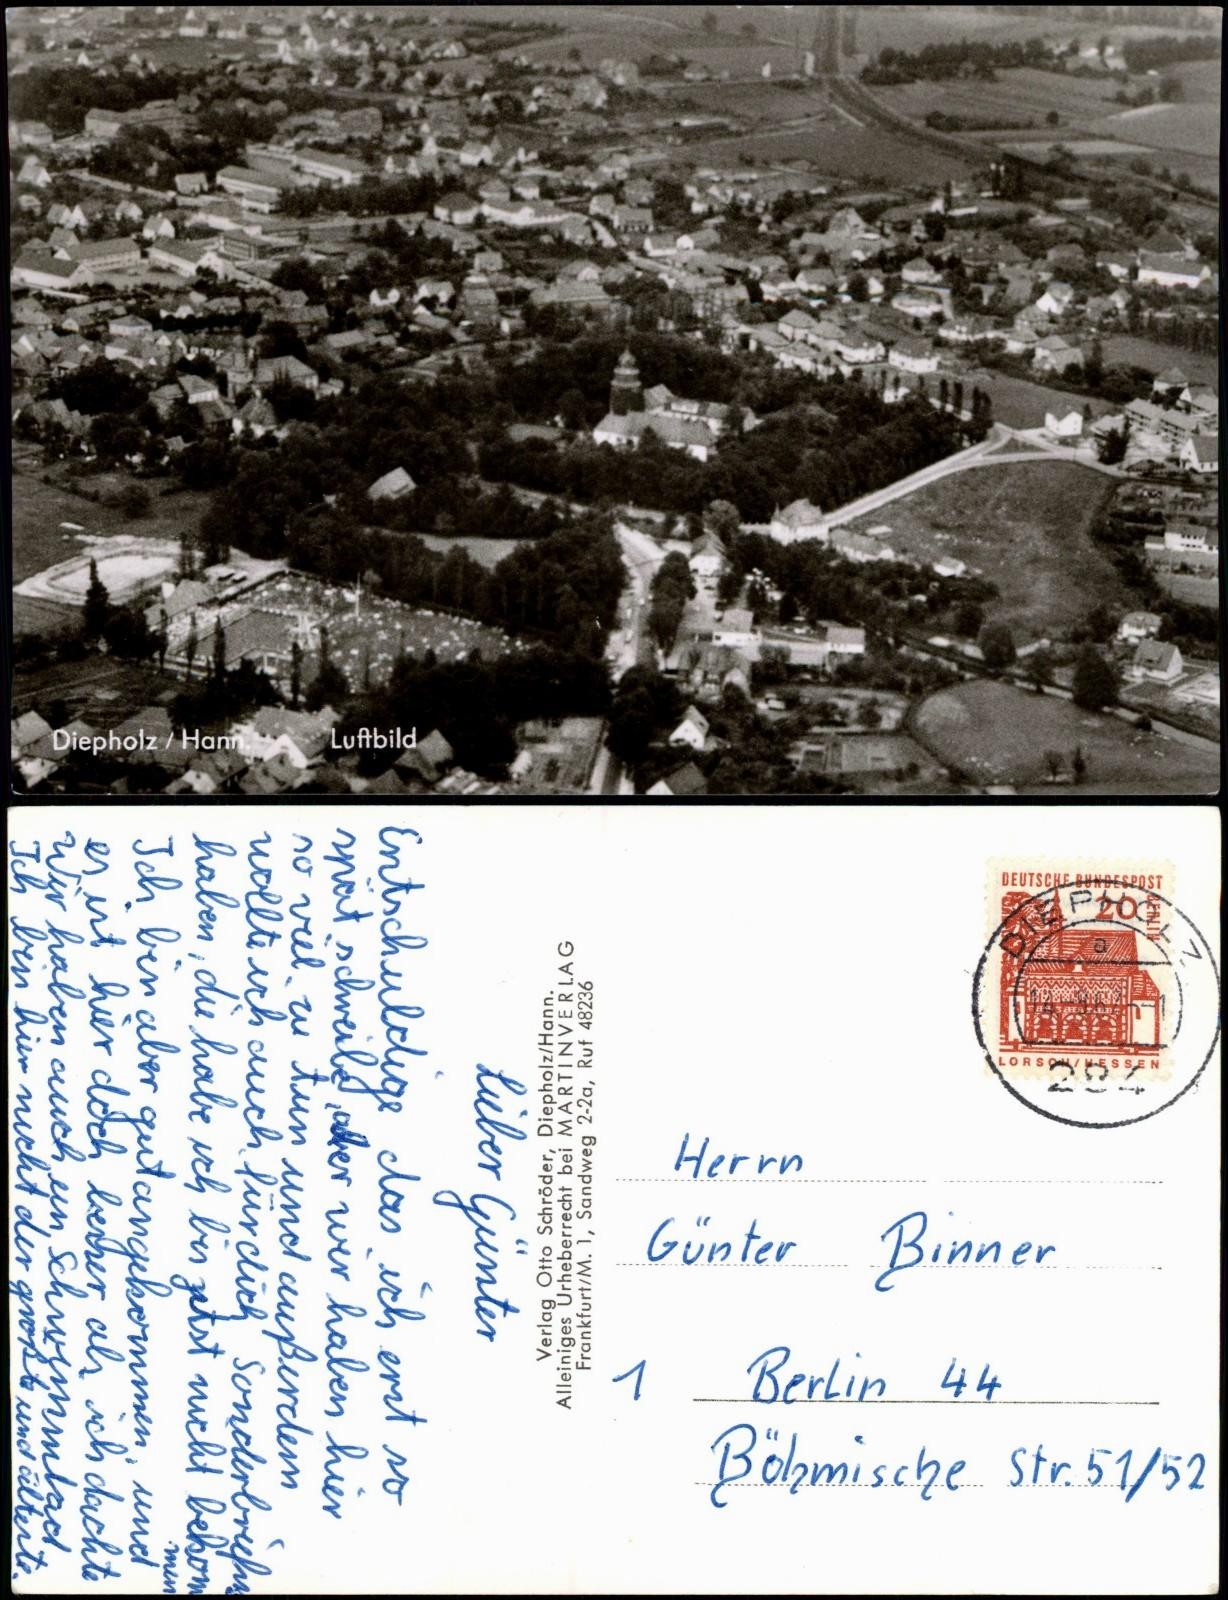 Diepholz / Hann. Luftbild
Lieber Günter
Entschuldige das ich erst so
spät schreibe, aber wir haben hier
so viel zu tun und außerdem
wollte ich auch für dich Sonderbriefm
haben, die habe ich bis jetzt nicht bekom
men
Ich bin aber gut angekommen, und
es ist hier doch besser als ich dachte
Wir haben auch ein Schwimmbad
Ich bin hier nicht der größte und älteste.
Verlag Otto Schröder, Diepholz/Hann.
Alleiniges Urheberrecht bei MARTINVERLAG
Frankfurt/M. 1, Sandweg 2-2a, Ruf 48236
DEUTSCHE BUNDESPOST
BERLIN
20
LORSCH/HESSEN
DIEPHOLZ
a
284
Herrn
Günter Binner
1 Berlin 44
Böhmische Str. 51/52